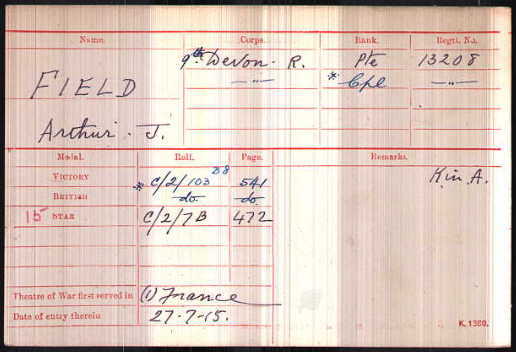 Name. Corps. Rank. Regtl. No.
9th Devon. R. Pte 13208
FIELD —"— * Cpl —"—
Arthur. J.
Medal. Roll. Page. Remarks.
VICTORY * C/2/103 B8 541 Kin A.
BRITISH do do
15 STAR C/2/7B 472
Theatre of War first served in (1) France
Date of entry therein 27-7-15.
K. 1380.